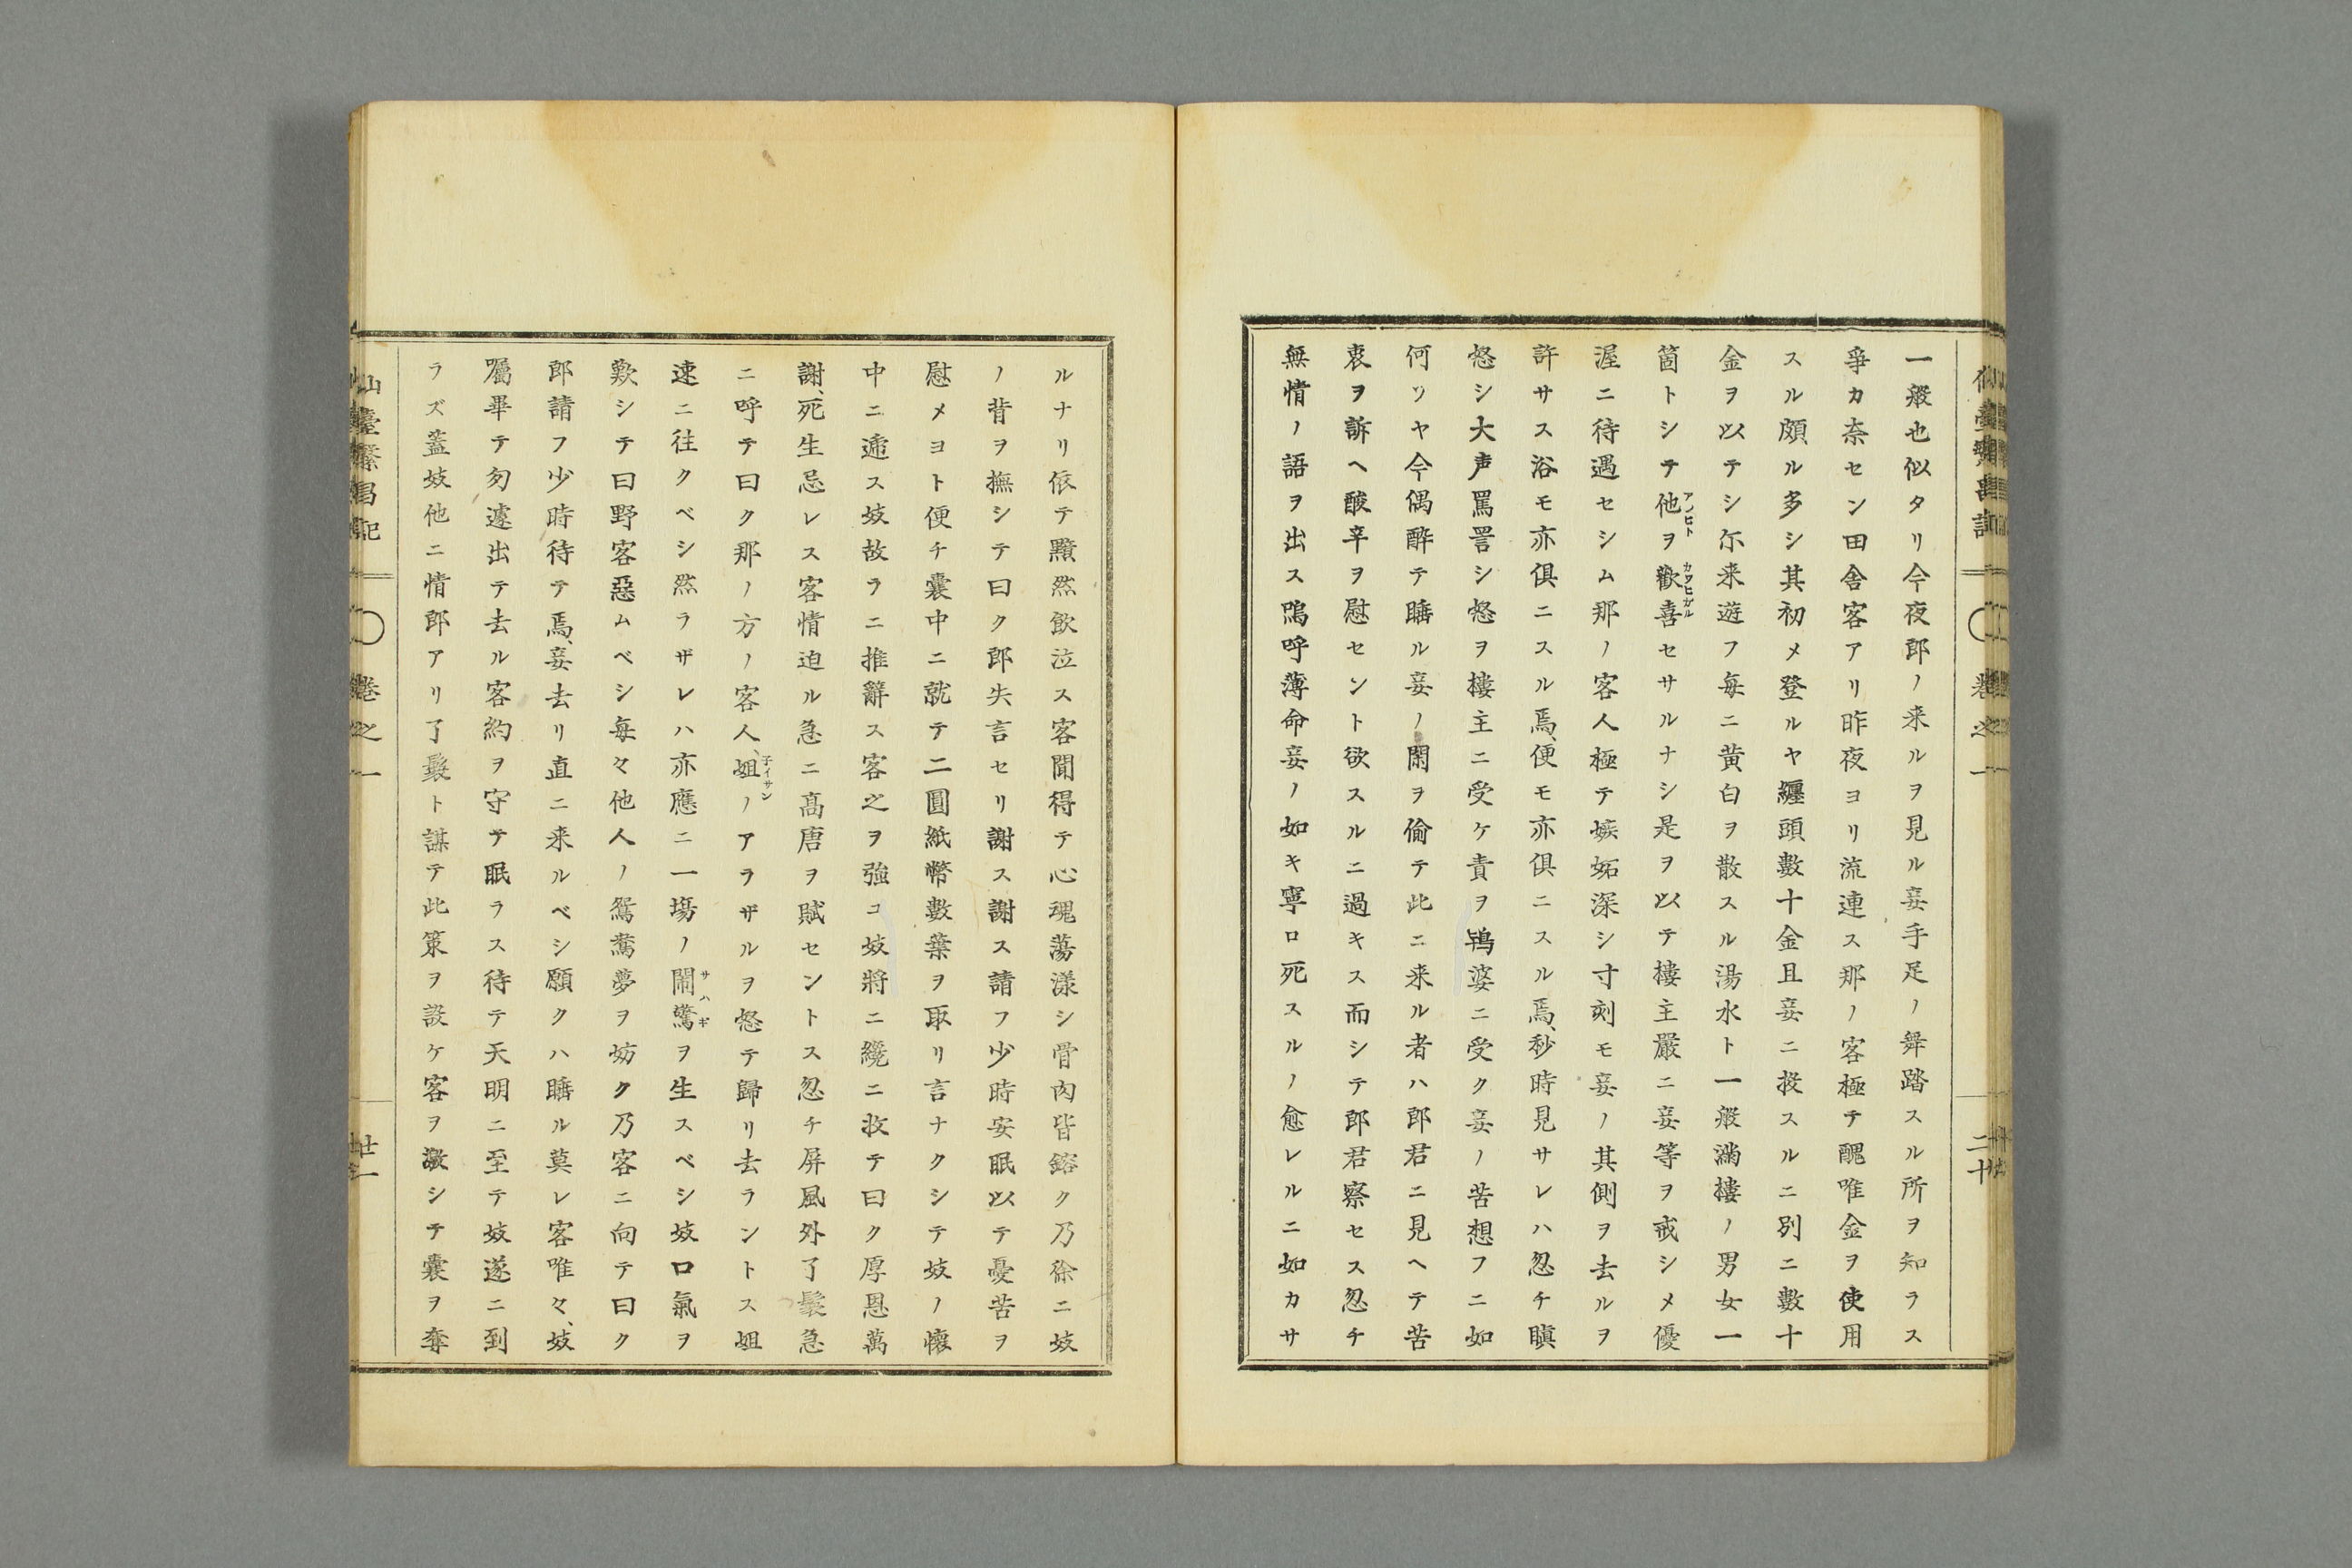 一般也似タリ今夜郎ノ来ルヲ見ル妾手足ノ舞踏スル所ヲ知ラス
争カ奈セン田舎客アリ昨夜ヨリ流連ス那ノ客極テ醜唯金ヲ使用
スル頗ル多シ其初メ登ルヤ纏頭數十金且妾ニ投スルニ別ニ數十
金ヲ以テシ尓来遊フ毎ニ黄白ヲ散スル湯水ト一般滿樓ノ男女一
箇トシテ他アノヒトヲ歡喜カワヒガルセサルナシ是ヲ以テ樓主嚴ニ妾等ヲ戒シメ優
渥ニ待遇セシム那ノ客人極テ嫉妬深シ寸刻モ妾ノ其側ヲ去ルヲ
許サス浴モ亦俱ニスル焉、便モ亦俱ニスル焉、秒時見サレハ忽チ瞋
怒シ大声罵詈シ怒ヲ樓主ニ受ケ責ヲ鴇婆ニ受ク妾ノ苦想フニ如
何ソヤ今偶酔テ睡ル妾ノ閑ヲ偷テ此ニ来ル者ハ郎君ニ見ヘテ苦
衷ヲ訴ヘ酸辛ヲ慰セント欲スルニ過キス而シテ郎君察セス忽チ
無情ノ語ヲ出ス嗚呼薄命妾ノ如キ寧ロ死スルノ愈レルニ如カサ
卷之一
二十
ルナリ依テ黯然飲泣ス客聞得テ心魂蕩漾シ骨肉皆鎔ク乃徐ニ妓
ノ背ヲ撫シテ曰ク郎失言セリ謝ス謝ス請フ少時安眠以テ憂苦ヲ
慰メヨト便チ嚢中ニ就テ二圓紙幣數葉ヲ取リ言ナクシテ妓ノ懐
中ニ逓ス妓故ラニ推辭ス客之ヲ強コ妓將ニ纔ニ收テ曰ク厚恩萬
謝、死生忌レス客情迫ル急ニ高唐ヲ賦セントス忽チ屏風外了鬟急
ニ呼テ曰ク那ノ方ノ客人、姐子イサンノアラザルヲ怒テ歸リ去ラントス姐
速ニ往クベシ然ラザレハ亦應ニ一場ノ鬧驚サハギヲ生スベシ妓口氣ヲ
歎シテ曰野客惡ムベシ毎々他人ノ鴛鴦夢ヲ妨ク乃客ニ向テ曰ク
郎請フ少時待テ焉、妾去リ直ニ来ルベシ願クハ睡ル莫レ客唯々、妓
屬畢テ匆遽出テ去ル客約ヲ守テ眠ラス待テ天明ニ至テ妓遂ニ到
ラズ蓋妓他ニ情郎アリ了鬟ト謀テ此策ヲ設ケ客ヲ激シテ嚢ヲ奪
卷之一
廿一